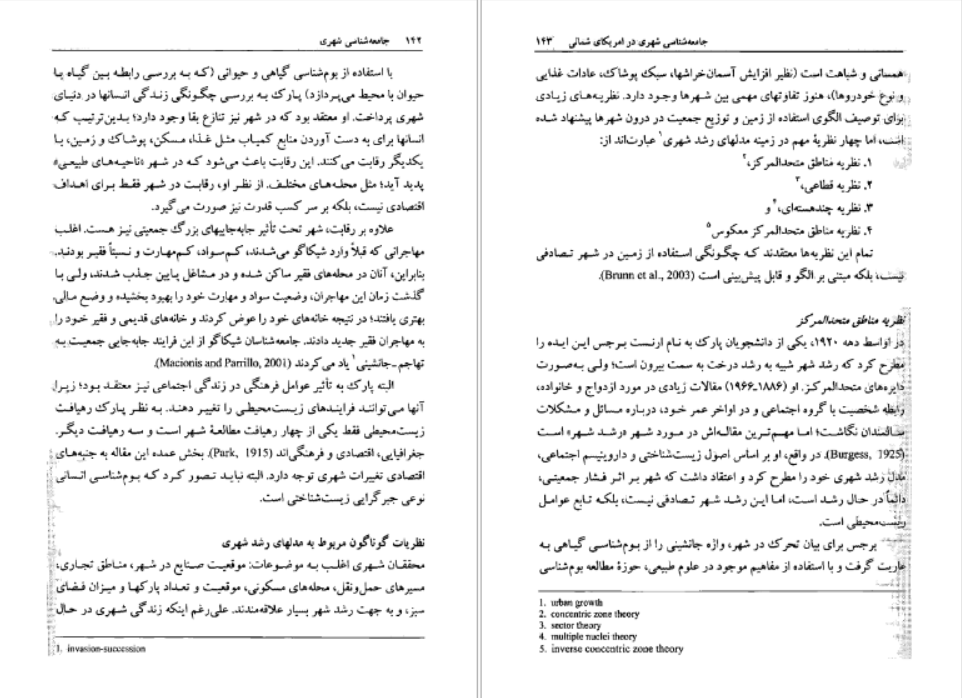 ۱۴۲ جامعه‌شناسی شهری
با استفاده از بوم‌شناسی گیاهی و حیوانی (که به بررسی رابطه بین گیاه یا
حیوان با محیط می‌پردازد) پارک به بررسی چگونگی زندگی انسانها در دنیای
شهری پرداخت. او معتقد بود که در شهر نیز تنازع بقا وجود دارد؛ بدین‌ترتیب که
انسانها برای به دست آوردن منابع کمیاب مثل غذا، مسکن، پوشاک و زمین، با
یکدیگر رقابت می‌کنند. این رقابت باعث می‌شود که در شهر «ناحیه‌های طبیعی»
پدید آید؛ مثل محله‌های مختلف. از نظر او، رقابت در شهر فقط برای اهداف
اقتصادی نیست، بلکه بر سر کسب قدرت نیز صورت می‌گیرد.
علاوه بر رقابت، شهر تحت تأثیر جابه‌جاییهای بزرگ جمعیتی نیز هست. اغلب
مهاجرانی که قبلاً وارد شیکاگو می‌شدند، کم‌سواد، کم‌مهارت و نسبتاً فقیر بودند.
بنابراین، آنان در محله‌های فقیر ساکن شده و در مشاغل پایین جذب شدند، ولی با
گذشت زمان این مهاجران، وضعیت سواد و مهارت خود را بهبود بخشیده و وضع مالی
بهتری یافتند؛ در نتیجه خانه‌های خود را عوض کردند و خانه‌های قدیمی و فقیر خود را
به مهاجران فقیر جدید دادند. جامعه‌شناسان شیکاگو از این فرایند جابه‌جایی جمعیت به
تهاجم ـ جانشینی۱ یاد می‌کردند (Macionis and Parrillo, 2001).
البته پارک به تأثیر عوامل فرهنگی در زندگی اجتماعی نیز معتقد بود؛ زیرا
آنها می‌توانند فرایندهای زیست‌محیطی را تغییر دهند. به نظر پارک رهیافت
زیست‌محیطی فقط یکی از چهار رهیافت مطالعهٔ شهر است و سه رهیافت دیگر،
جغرافیایی، اقتصادی و فرهنگی‌اند (Park, 1915). بخش عمده این مقاله به جنبه‌های
اقتصادی تغییرات شهری توجه دارد. البته نباید تصور کرد که بوم‌شناسی انسانی
نوعی جبرگرایی زیست‌شناختی است.
نظریات گوناگون مربوط به مدلهای رشد شهری
محققان شهری اغلب به موضوعات: موقعیت صنایع در شهر، مناطق تجاری،
مسیرهای حمل‌ونقل، محله‌های مسکونی، موقعیت و تعداد پارکها و میزان فضای
سبز، و به جهت رشد شهر بسیار علاقه‌مندند. علی‌رغم اینکه زندگی شهری در حال
1. invasion-succession
جامعه‌شناسی شهری در امریکای شمالی ۱۴۳
همسانی و شباهت است (نظیر افزایش آسمان‌خراشها، سبک پوشاک، عادات غذایی
و نوع خودروها)، هنوز تفاوتهای مهمی بین شهرها وجود دارد. نظریه‌های زیادی
برای توصیف الگوی استفاده از زمین و توزیع جمعیت در درون شهرها پیشنهاد شده
است، اما چهار نظریهٔ مهم در زمینه مدلهای رشد شهری۱ عبارت‌اند از:
۱. نظریه مناطق متحدالمرکز،۲
۲. نظریه قطاعی،۳
۳. نظریه چندهسته‌ای،۴ و
۴. نظریه مناطق متحدالمرکز معکوس۵
تمام این نظریه‌ها معتقدند که چگونگی استفاده از زمین در شهر تصادفی
نیست، بلکه مبتنی بر الگو و قابل پیش‌بینی است (Brunn et al., 2003).
نظریه مناطق متحدالمرکز
در اواسط دهه ۱۹۲۰، یکی از دانشجویان پارک به نام ارنست برجس این ایده را
مطرح کرد که رشد شهر شبیه به رشد درخت به سمت بیرون است؛ ولی به‌صورت
دایره‌های متحدالمرکز. او (۱۸۸۶ـ۱۹۶۶) مقالات زیادی در مورد ازدواج و خانواده،
رابطه شخصیت با گروه اجتماعی و در اواخر عمر خود، درباره مسائل و مشکلات
سالمندان نگاشت؛ اما مهم‌ترین مقاله‌اش در مورد شهر «رشد شهر» است
(Burgess, 1925). در واقع، او بر اساس اصول زیست‌شناختی و داروینیسم اجتماعی،
مدل رشد شهری خود را مطرح کرد و اعتقاد داشت که شهر بر اثر فشار جمعیتی،
دائماً در حال رشد است، اما این رشد شهر تصادفی نیست، بلکه تابع عوامل
زیست‌محیطی است.
برجس برای بیان تحرک در شهر، واژه جانشینی را از بوم‌شناسی گیاهی به
عاریت گرفت و با استفاده از مفاهیم موجود در علوم طبیعی، حوزهٔ مطالعه بوم‌شناسی
1. urban growth
2. concentric zone theory
3. sector theory
4. multiple nuclei theory
5. inverse concentric zone theory